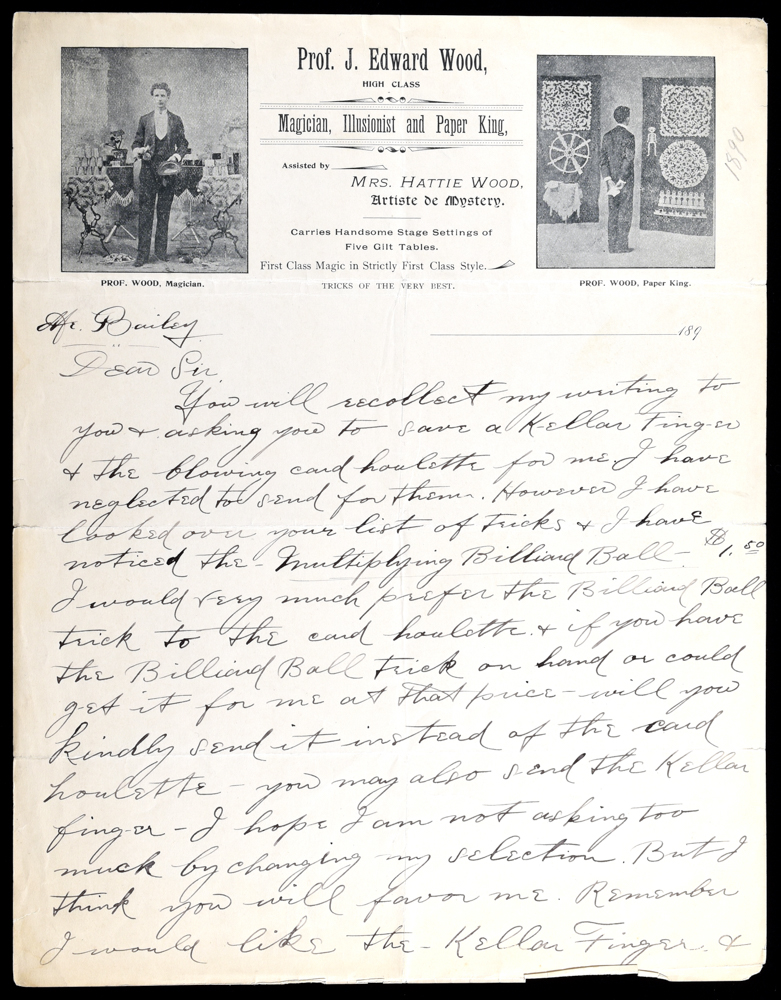 Prof. J. Edward Wood,
HIGH CLASS
Magician, Illusionist and Paper King,
Assisted by
MRS. HATTIE WOOD,
Artiste de Mystery.
Carries Handsome Stage Settings of
Five Gilt Tables.
First Class Magic in Strictly First Class Style.
TRICKS OF THE VERY BEST.
PROF. WOOD, Magician.
PROF. WOOD, Paper King.
1890
Mr. Bailey
189
Dear Sir
You will recollect my writing to
you & asking you to save a Kellar Finger
& the blowing card houlette for me I have
neglected to send for them. However I have
looked over your list of tricks & I have
noticed the - Multiplying Billiard Ball - $1.50
I would very much prefer the Billiard Ball
trick to the card houlette. & if you have
the Billiard Ball trick on hand or could
get it for me at that price - will you
kindly send it instead of the card
houlette - you may also send the Kellar
finger - I hope I am not asking too
much by changing my selection. But I
think you will favor me. Remember
I would like the - Kellar Finger. &